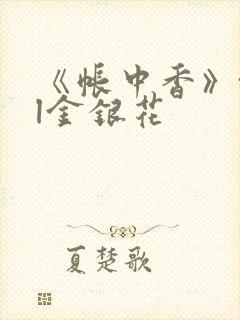 《帐中香》
l金银花
夏楚歌